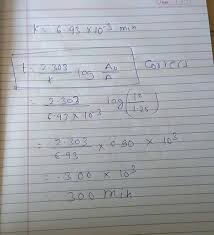 K = 6.93 × 10⁻³ min
t = 2.303 / K log A₀ / A
= 2.303 / 6.93 × 10³ log
= 2.303 / 6.93 × 0.90 × 10³
= .300 × 10³
300 min